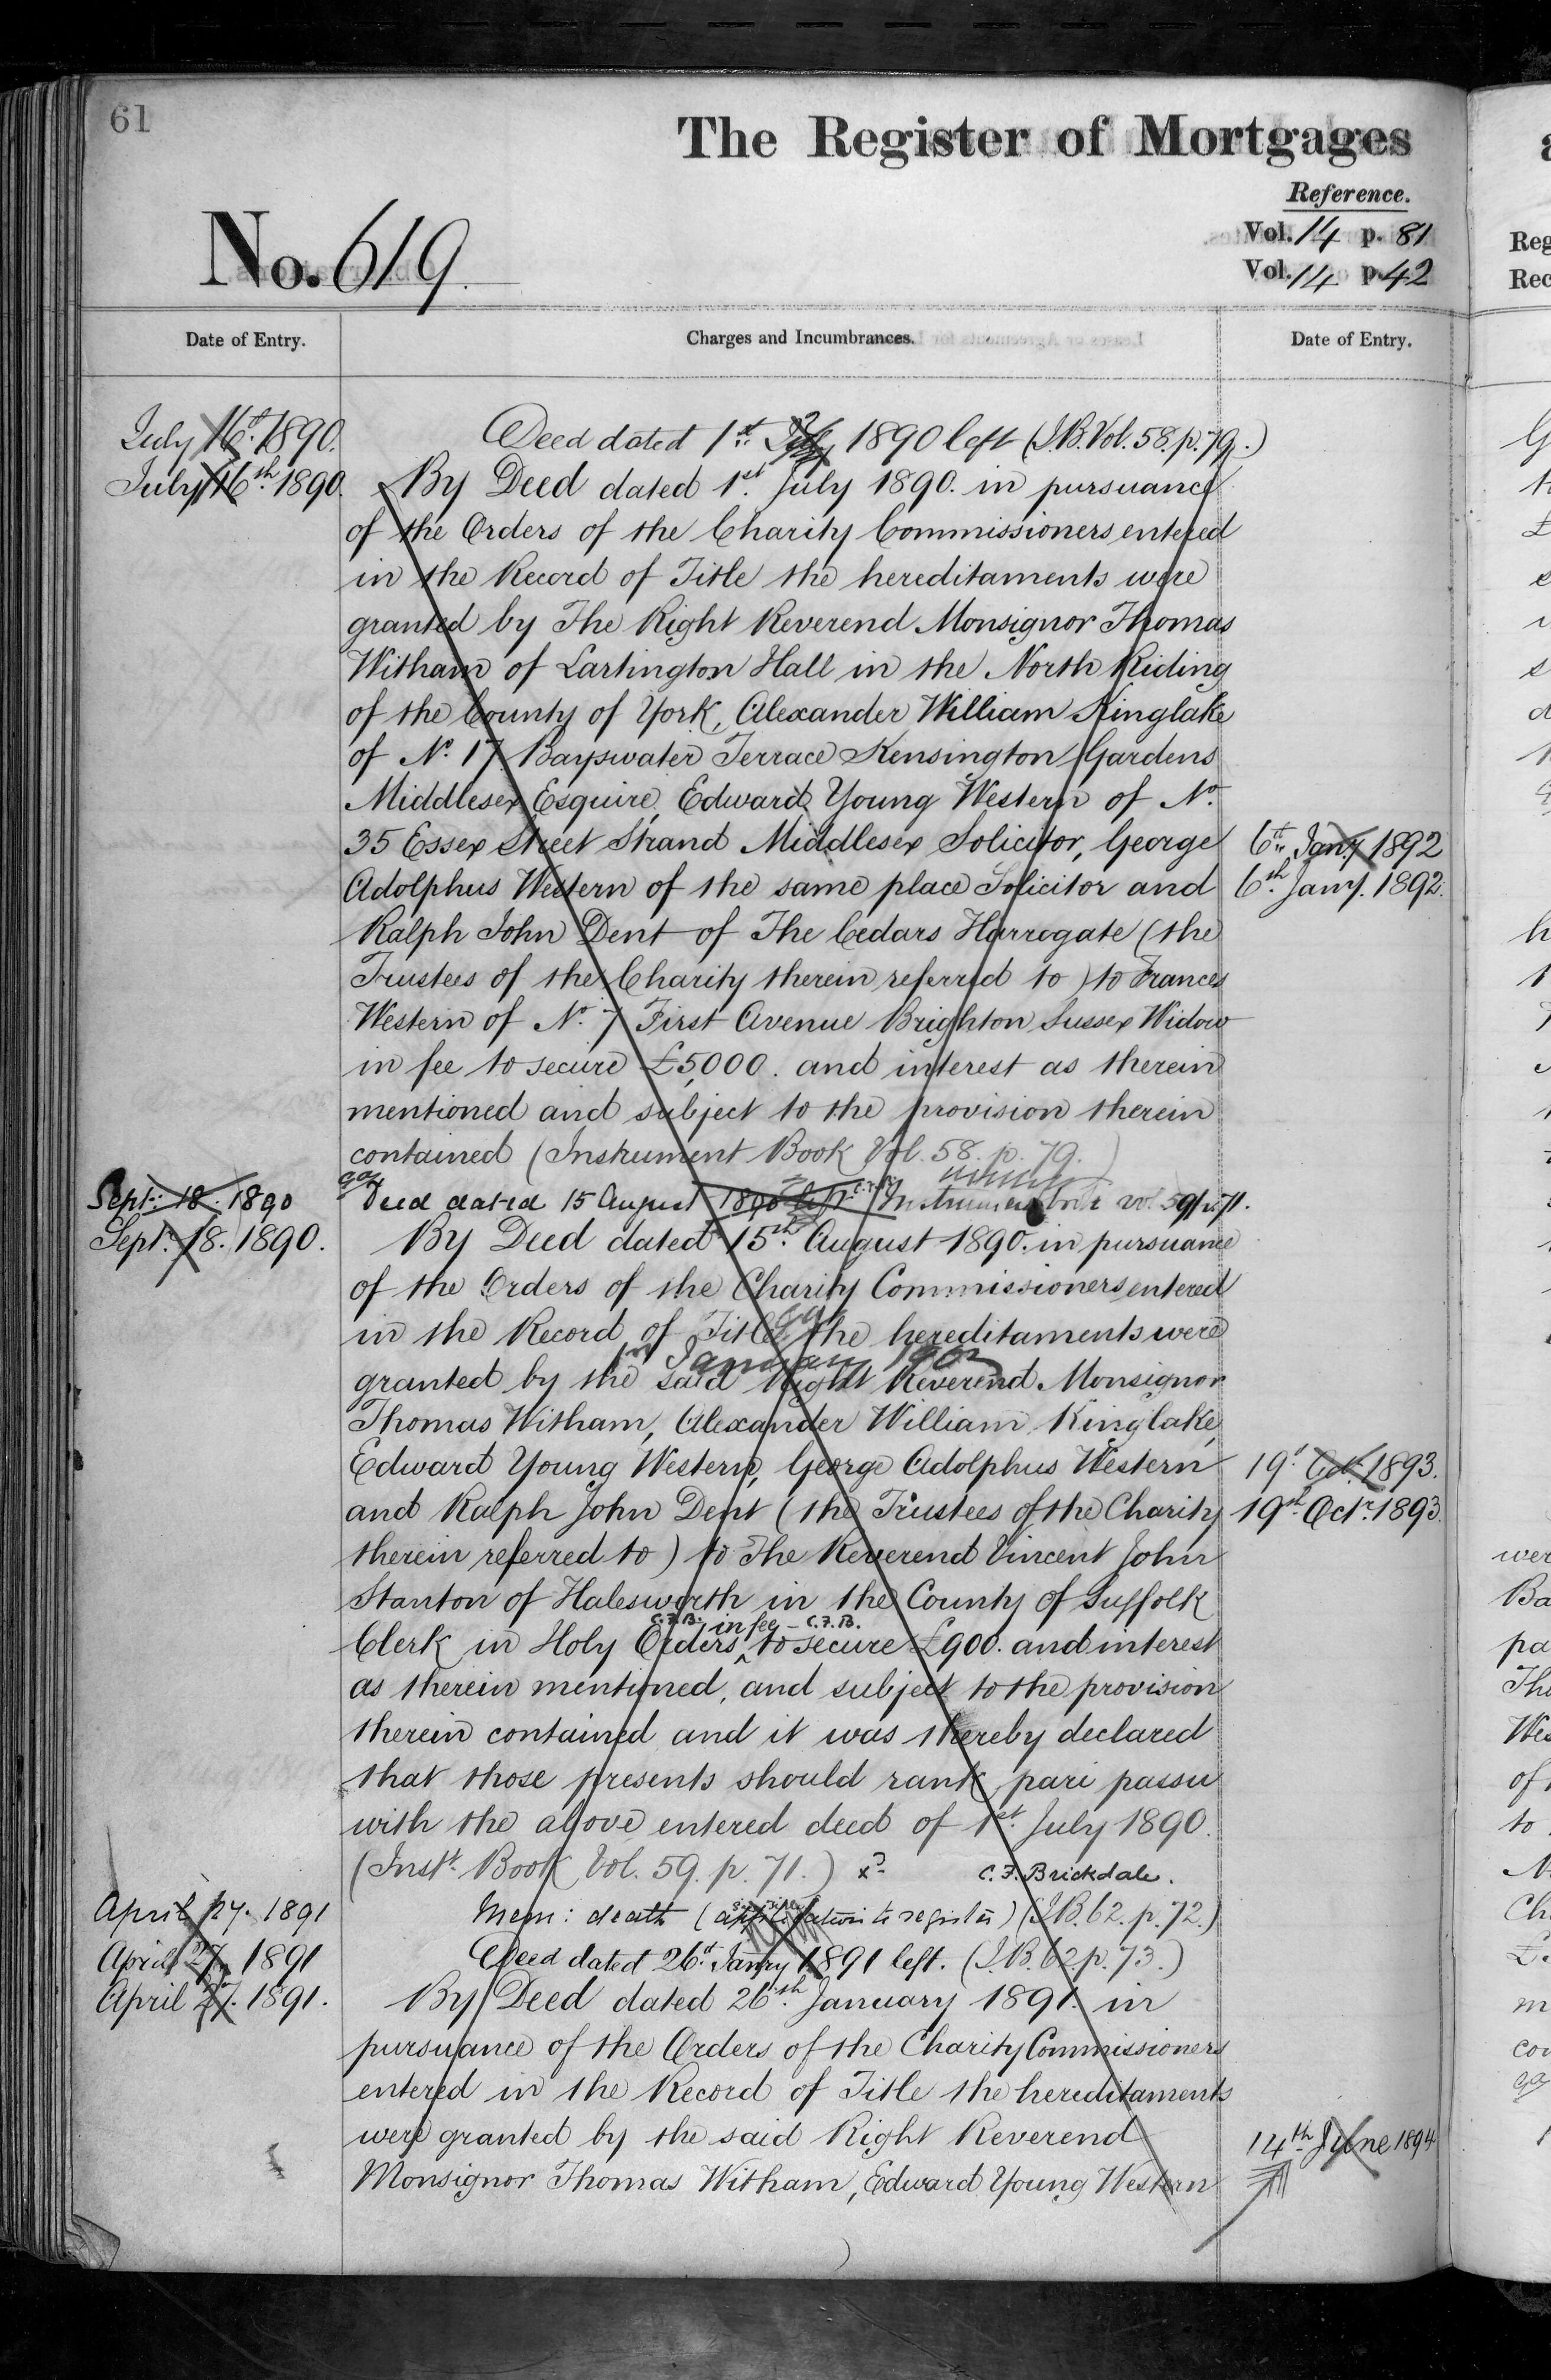 61
The Register of Mortgages
Reference.
No. 619.
Vol. 14 p. 81
Vol. 14 p. 42
Date of Entry.
Charges and Incumbrances.
Date of Entry.
July 16th 1890.
Deed dated 1st July 1890 left (I.B. Vol. 58. p. 79.)
July 16th 1890.
By Deed dated 1st July 1890. in pursuance
of the Orders of the Charity Commissioners entered
in the Record of Title the hereditaments were
granted by The Right Reverend Monsignor Thomas
Witham of Lartington Hall in the North Riding
of the County of York, Alexander William Kinglake
of No. 17 Bayswater Terrace Kensington Gardens
Middlesex Esquire, Edward Young Western of No.
35 Essex Street Strand Middlesex Solicitor, George
6th Jany 1892
Adolphus Western of the same place Solicitor and
6th Jany. 1892.
Ralph John Dent of The Cedars Harrogate (the
Trustees of the Charity therein referred to) to Frances
Western of No. 7 First Avenue Brighton Sussex Widow
in fee to secure £5,000. and interest as therein
mentioned and subject to the provision therein
contained (Instrument Book Vol. 58. p. 79.)
Sept. 18. 1890
Deed dated 15 August 1890 left (Instrument Book vol 59 p. 71.
Sept. 18. 1890.
By Deed dated 15th August 1890. in pursuance
of the Orders of the Charity Commissioners entered
in the Record of Title the hereditaments were
January 1902
granted by the said Right Reverend Monsignor
Thomas Witham, Alexander William Kinglake,
Edward Young Western, George Adolphus Western
19th Oct. 1893.
and Ralph John Dent (the Trustees of the Charity
19th Octr. 1893.
therein referred to) to The Reverend Vincent John
Stanton of Halesworth in the County of Suffolk
C.F.B. in fee - C.F.B.
Clerk in Holy Orders ^ to secure £900. and interest
as therein mentioned, and subject to the provision
therein contained and it was thereby declared
that those presents should rank pari passu
with the above entered deed of 1st July 1890.
(Inst. Book Vol. 59. p. 71.) xd C.F. Brickdale.
April 27. 1891
Mem: death (application to register) (I.B. 62. p. 72.)
April 27. 1891
Deed dated 26th Janry 1891 left. (I.B. 62. p. 73.)
April 27. 1891.
By Deed dated 26th January 1891. in
pursuance of the Orders of the Charity Commissioners
entered in the Record of Title the hereditaments
were granted by the said Right Reverend
14th June 1894
Monsignor Thomas Witham, Edward Young Western